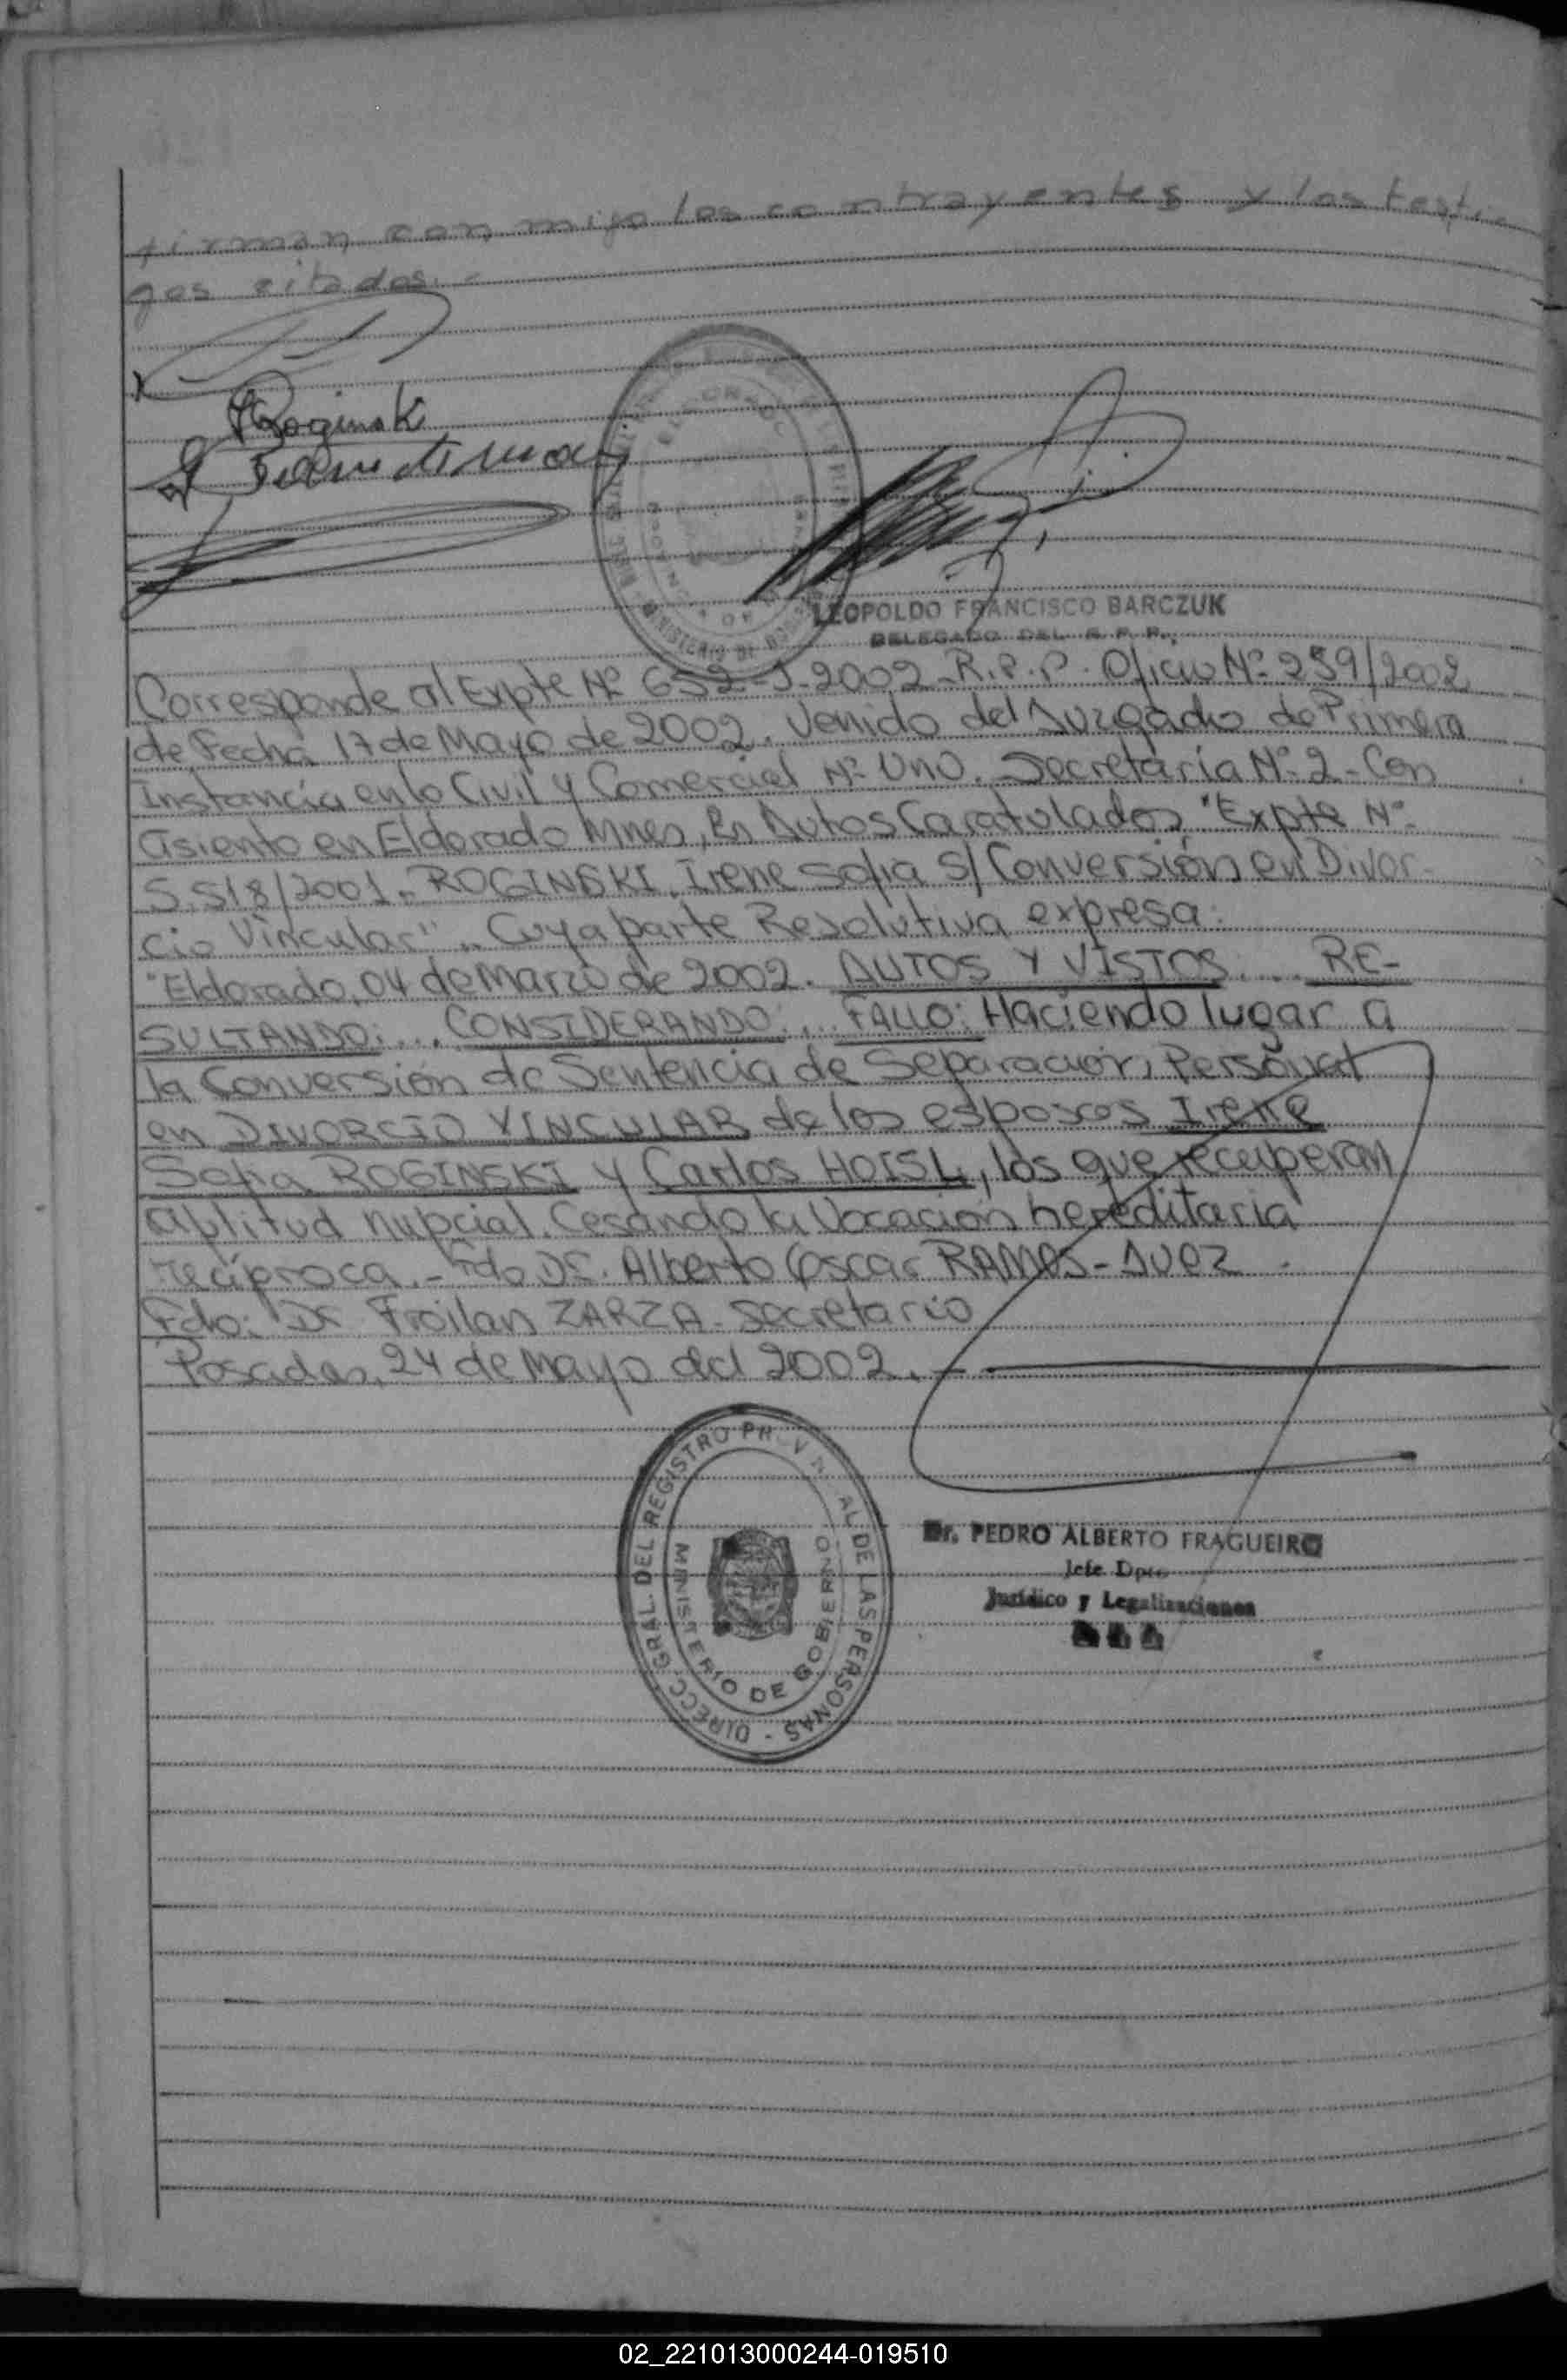 firman con migo los contrayentes y los testi
gos citados.-
Roginsk
LEOPOLDO FRANCISCO BARCZUK
DELEGADO DEL R. P. P.
Corresponde al Expte Nº 652-J-2002-R.P.P. Oficio Nº 259/2002
de Fecha 17 de Mayo de 2002. Venido del Juzgado de Primera
Instancia en lo Civil y Comercial Nº Uno. Secretaria Nº 2 - Con
asiento en Eldorado Mnes, En Autos Caratulados "Expte Nº
S.518/2001.- ROGINSKI, Irene Sofia S/ Conversión en Divor-
cio Vincular".. Cuya parte Resolutiva expresa:
"Eldorado, 04 de Marzo de 2002. AUTOS Y VISTOS:... RE-
SULTANDO:... CONSIDERANDO:... FALLO: Haciendo lugar a
la Conversión de Sentencia de Separación Personal
en DIVORCIO VINCULAR de los esposos Irene
Sofia ROGINSKI y Carlos HOISL, los que recuperan
aptitud nupcial. Cesando la Vocación hereditaria
recíproca.- Fdo Dr. Alberto Oscar RAMOS - Juez -
Fdo: Dr Froilan ZARZA. Secretario
Posadas, 24 de Mayo del 2002.-
DIRECC. GRAL. DEL REGISTRO PROVINCIAL DE LAS PERSONAS -
MINISTERIO DE GOBIERNO
Dr. PEDRO ALBERTO FRAGUEIRO
Jefe Dpto
Jurídico y Legalizaciones
02_221013000244-019510